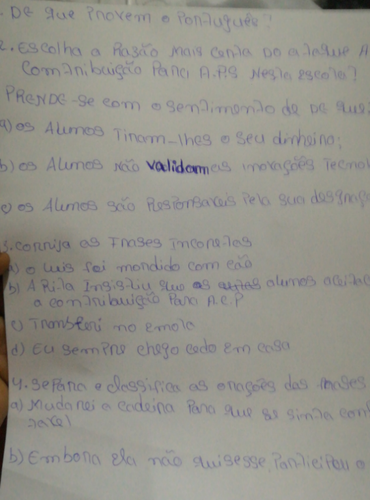 . De que provem o Português?
2. Escolha a Razão mais certa Do ataque A
contribuição Para A.P.S Nesta escola?
PRENDE-se com o sentimento de De que
a) os Alunos Tiram-lhes o seu dinheiro;
b) os Alunos não validam as inovações Tecnol
c) os Alunos são Responsaveis Pela sua desgraça
3. corrija as Frases Incorretas
a) o Luis foi mondido com cão
b) A Rita Insistiu que os alunos aceitas
a contribuição Para A.C.P
c) Transferi no emola
d) Eu sempre chego cedo em casa
4. Separa e classifica as orações das frases
a) Mudarei a cadeira Para que se sinta con
tavel
b) Embora ela não quisesse, Participou o